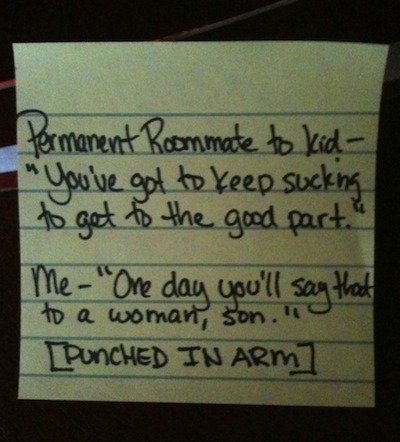 Permanent Roommate to kid-
"You've got to keep sucking
to get to the good part."
Me-"One day you'll say that
to a woman, son."
[PUNCHED IN ARM]